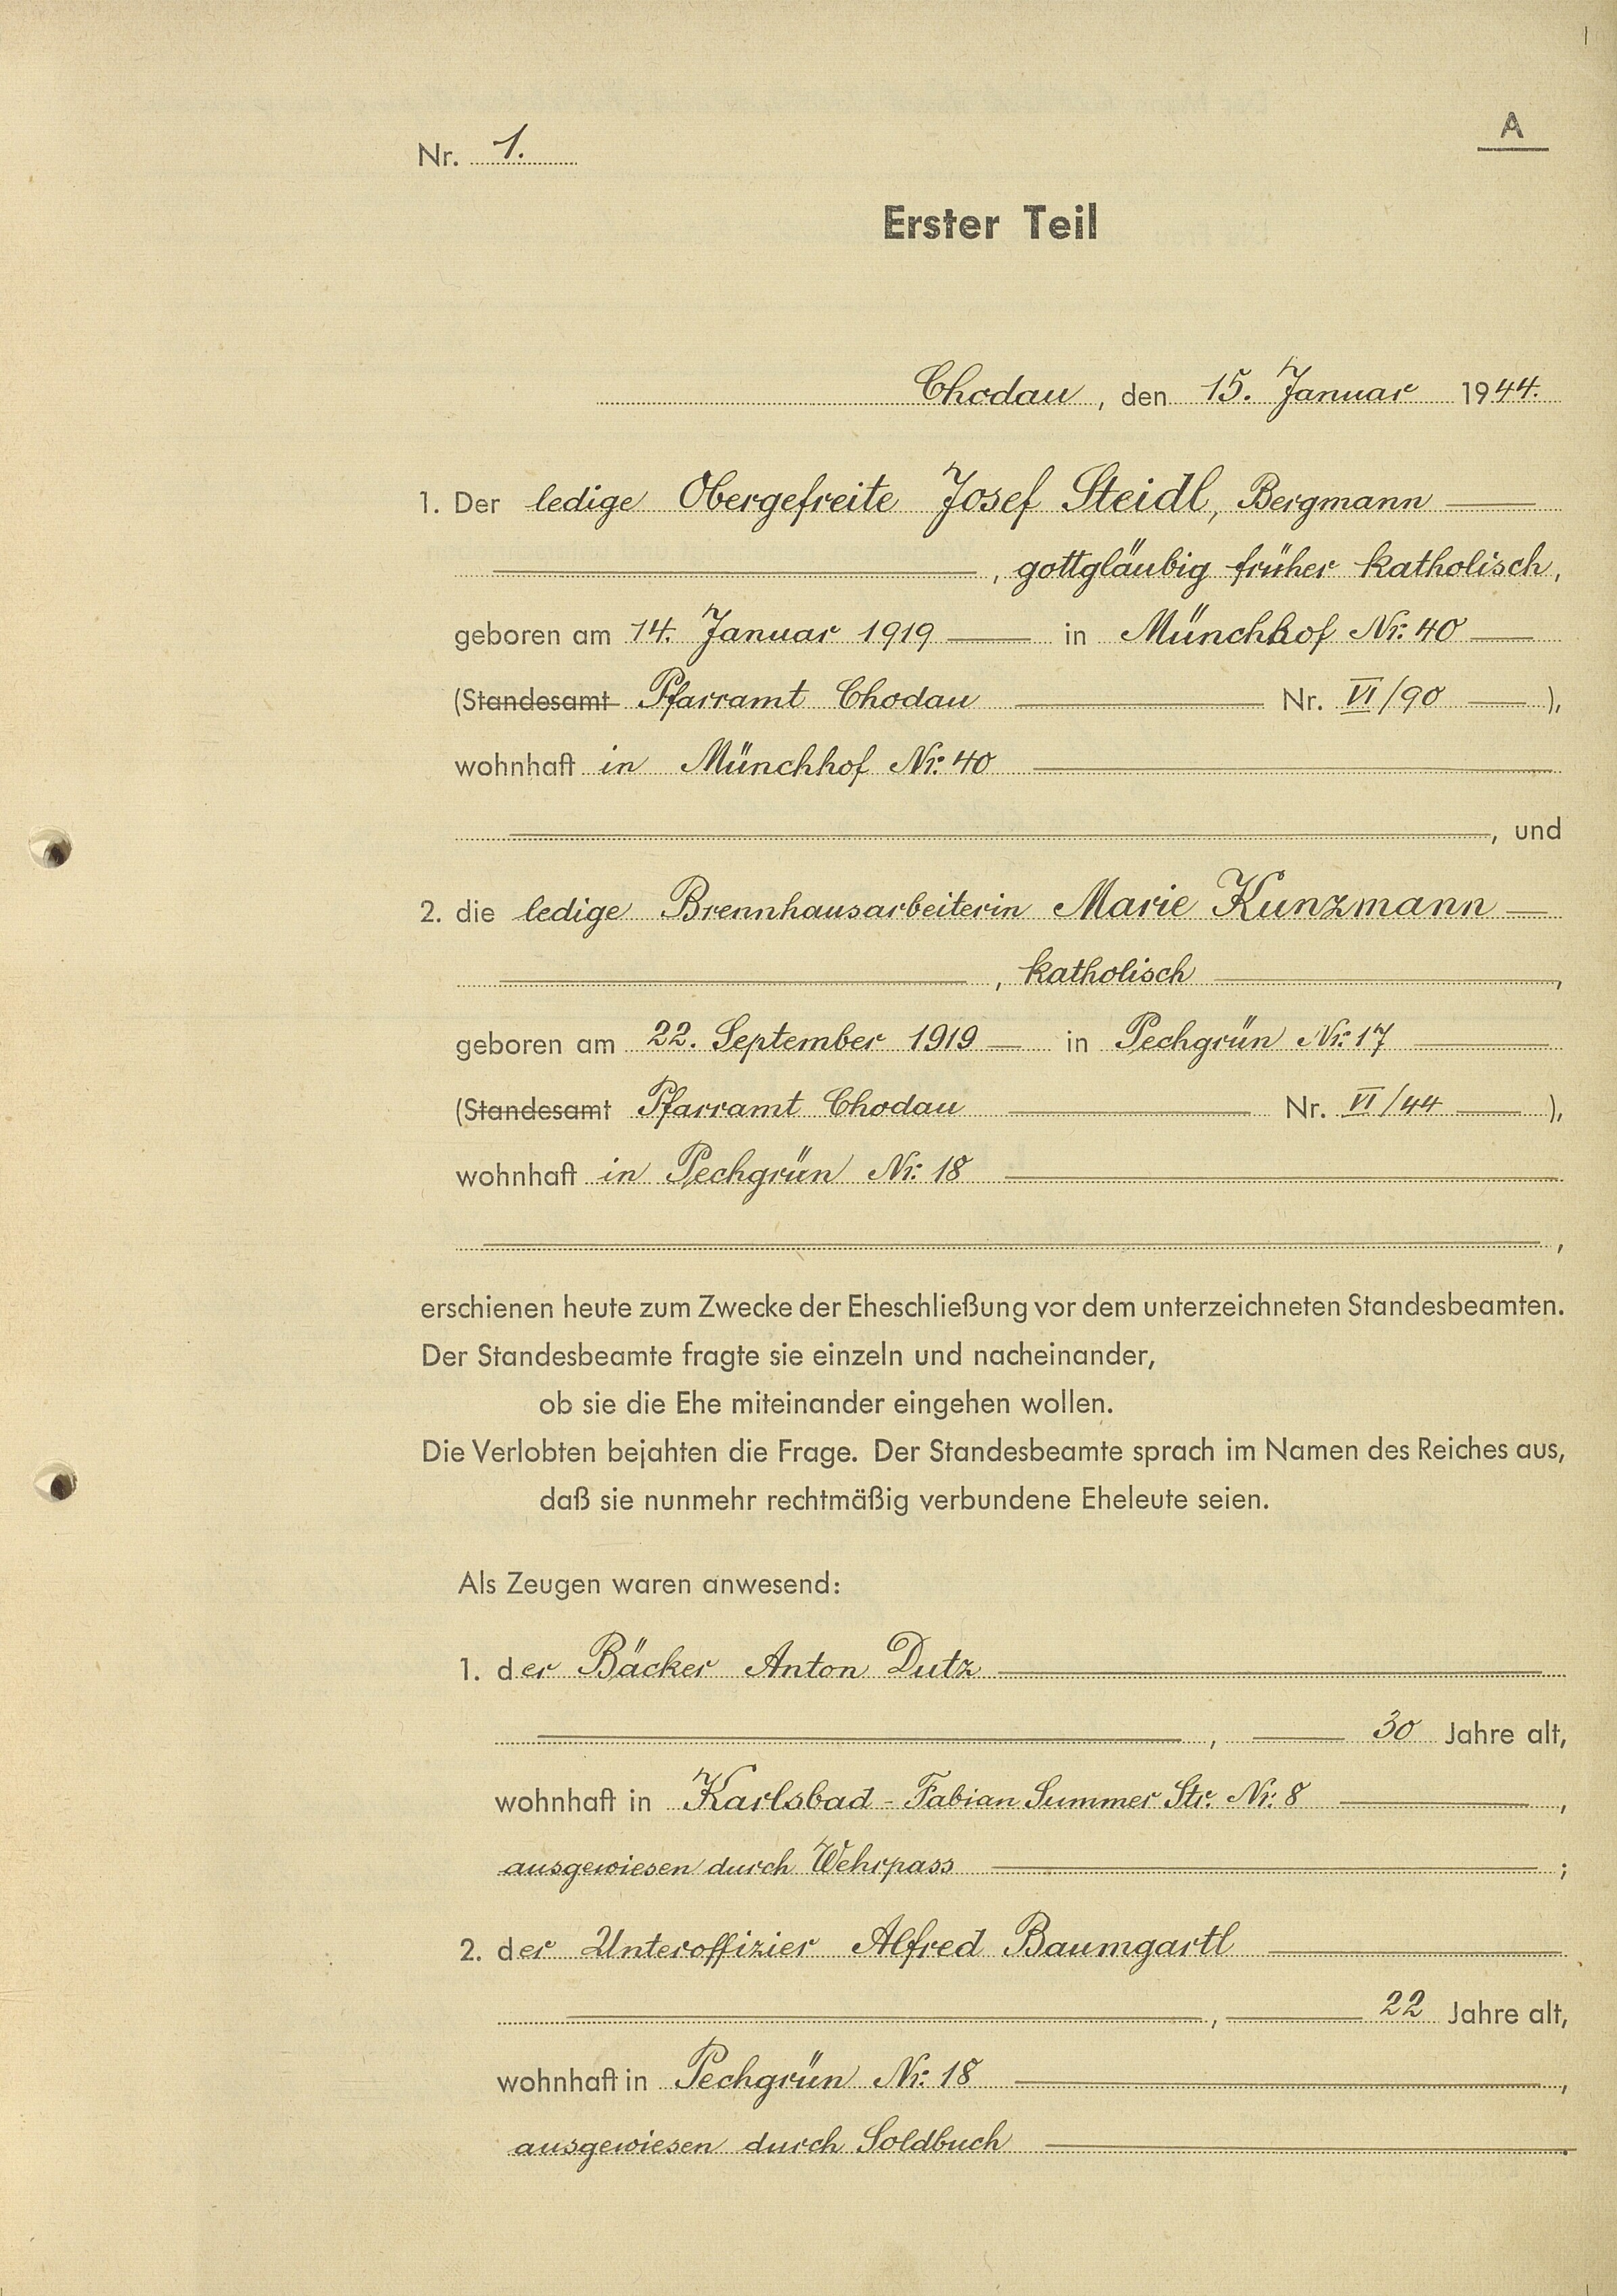 A
Nr. 1.
Erster Teil
Chodau, den 15. Januar 1944.
1. Der ledige Obergefreite Josef Steidl, Bergmann
, gottgläubig früher katholisch,
geboren am 14. Januar 1919 in Münchhof Nr. 40
(Standesamt Pfarramt Chodau Nr. VI/90 ),
wohnhaft in Münchhof Nr. 40
, und
2. die ledige Brennhausarbeiterin Marie Kunzmann
, katholisch ,
geboren am 22. September 1919 in Pechgrün Nr. 17
(Standesamt Pfarramt Chodau Nr. VI/44 ),
wohnhaft in Pechgrün Nr. 18
,
erschienen heute zum Zwecke der Eheschließung vor dem unterzeichneten Standesbeamten.
Der Standesbeamte fragte sie einzeln und nacheinander,
ob sie die Ehe miteinander eingehen wollen.
Die Verlobten bejahten die Frage. Der Standesbeamte sprach im Namen des Reiches aus,
daß sie nunmehr rechtmäßig verbundene Eheleute seien.
Als Zeugen waren anwesend:
1. der Bäcker Anton Dutz
, 30 Jahre alt,
wohnhaft in Karlsbad - Fabian Summer Str. Nr. 8 ,
ausgewiesen durch Wehrpass ;
2. der Unteroffizier Alfred Baumgartl
, 22 Jahre alt,
wohnhaft in Pechgrün Nr. 18 ,
ausgewiesen durch Soldbuch .